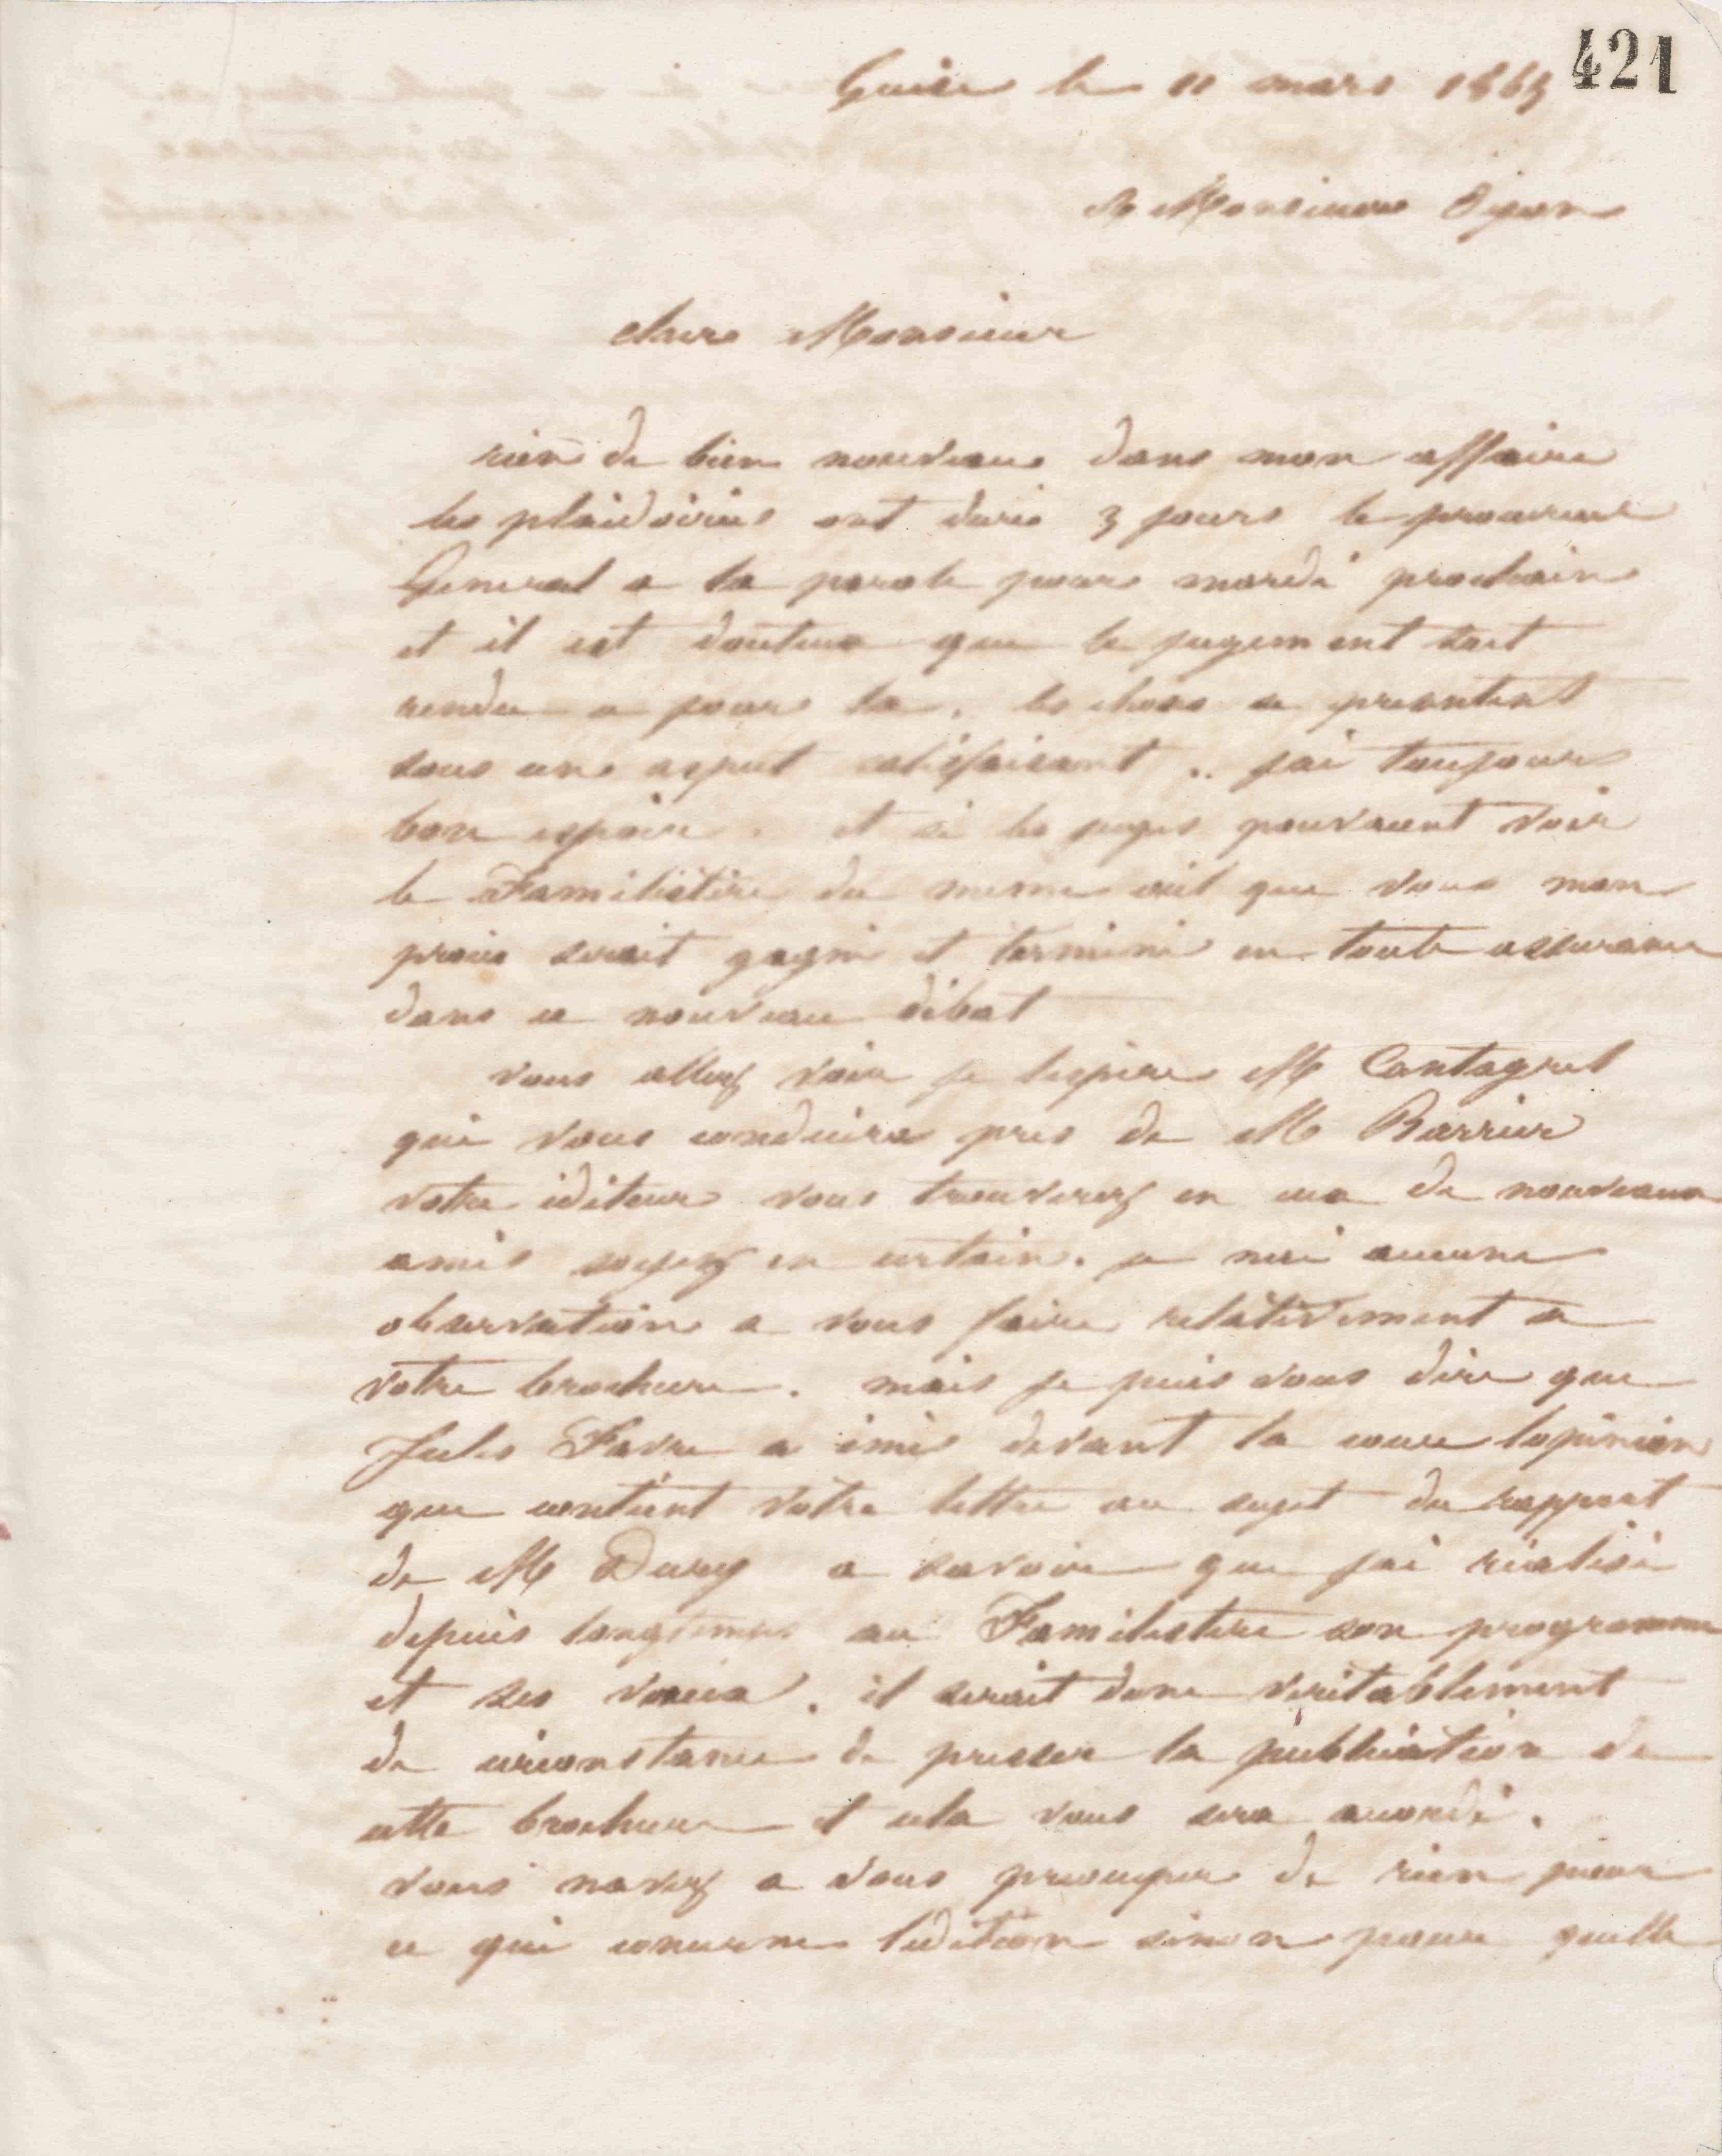 421
Guise le 11 mars 1865
A Monsieur Oyon
cher Monsieur
rien de bien nouveau dans mon affaire
les plaidoiries ont duré 3 jours le procureur
General a la parole pour mardi prochain
et il est douteux que le jugement soit
rendu ce jour la. les choses se presentent
sous un aspect satisfaisant .. jai toujours
bon espoir. et si les juges pouvaient voir
le Familistère du meme œil que vous mon
procès serait gagné et terminé en toute assurance
dans ce nouveau débat
vous allez voir je lespère M Cantagrel
qui vous conduira pres de M Barrier
votre éditeur vous trouverez en eux de nouveaux
amis soyez en certain. je nai aucune
observation a vous faire relativement a
votre brochure. mais je puis vous dire que
Jules Favre a émis devant la cour lopinion
que contient votre lettre au sujet du rapport
de M Duruy a savoir que jai réalisé
depuis longtemps au Familistere son programme
et ses vœux. il serait donc veritablement
de circonstance de presser la publication de
cette brochure et cela vous sera accordé.
vous navez a vous preoccuper de rien pour
ce qui concerne lédition sinon pour quelle